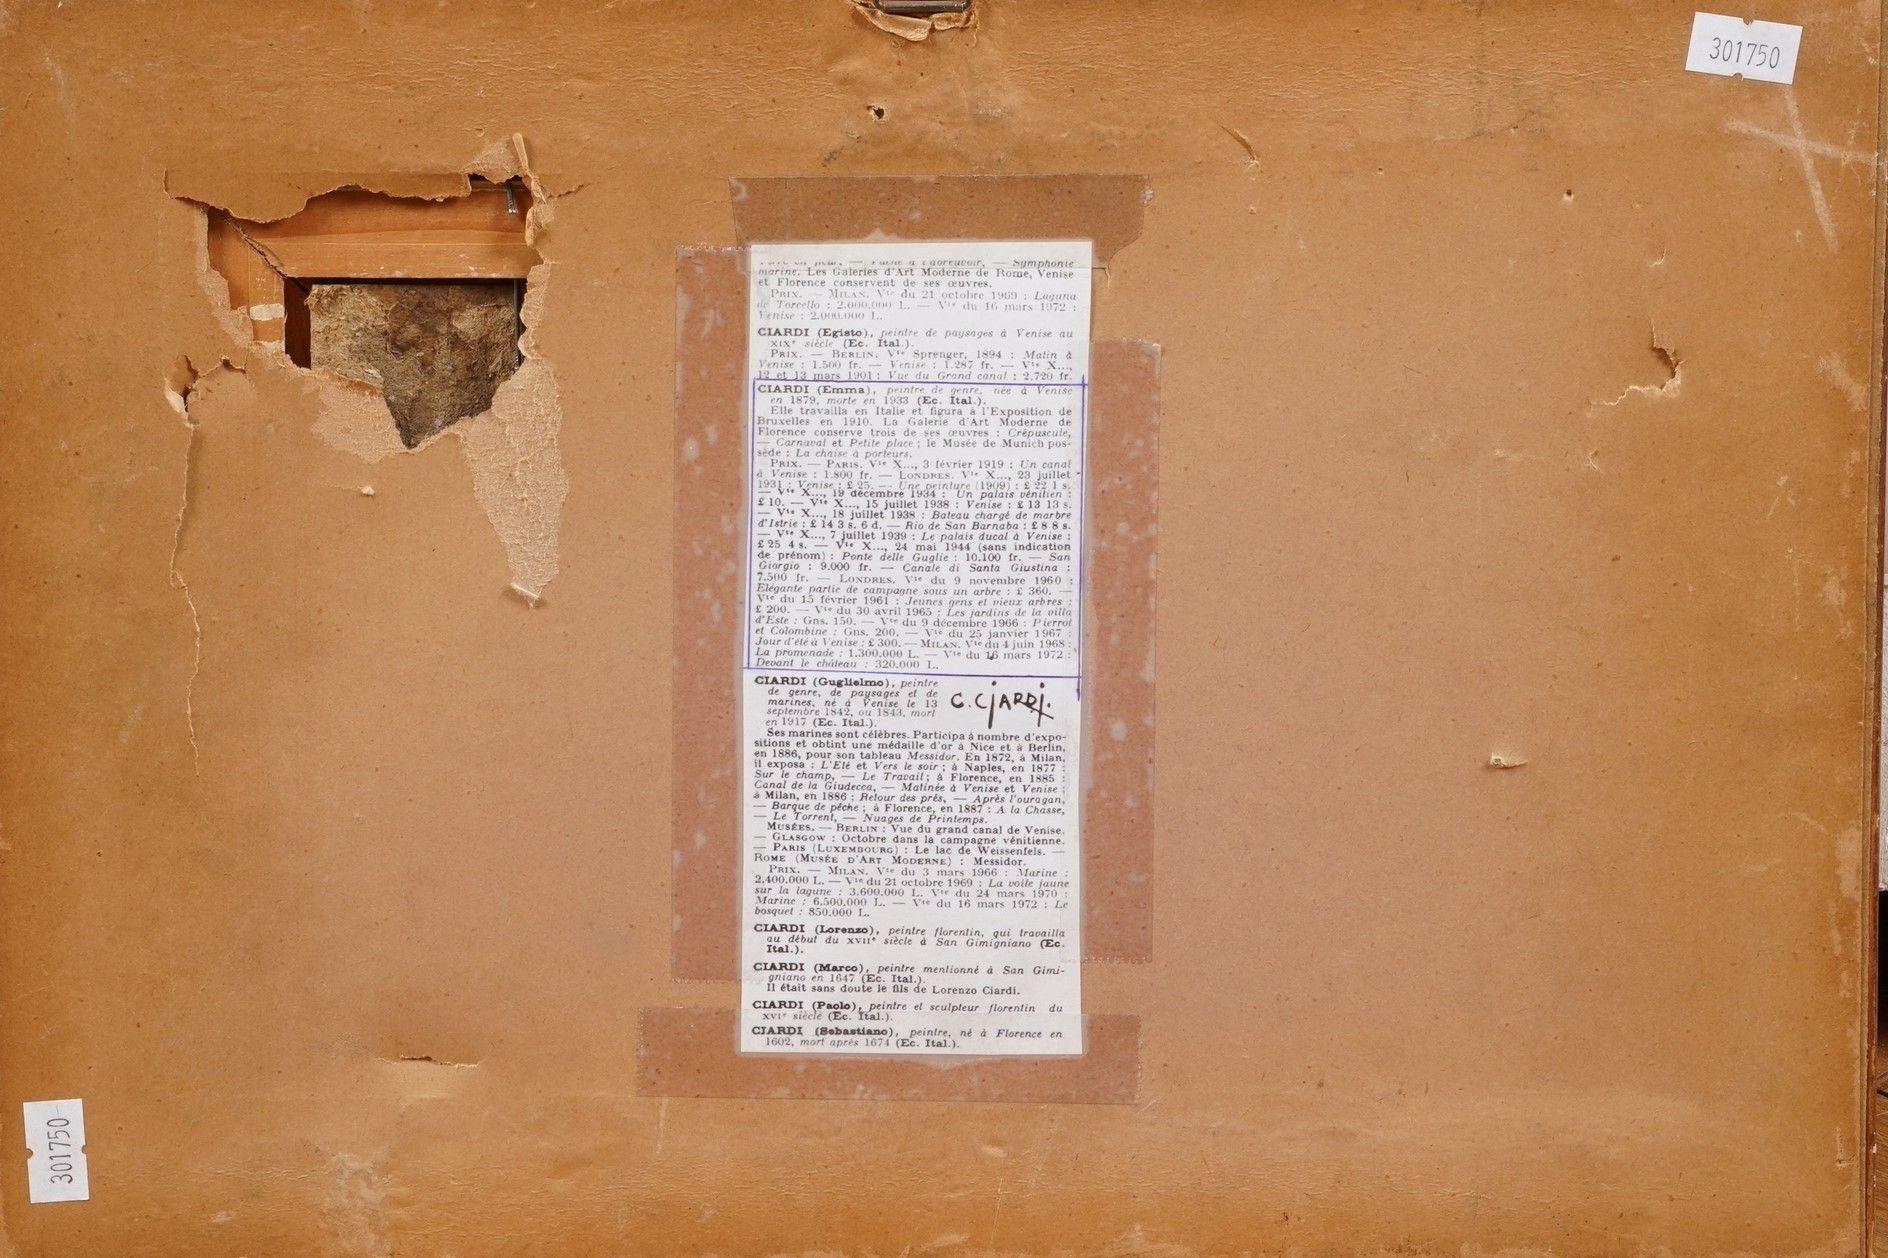 301750
marine. Les Galeries d'Art Moderne de Rome, Venise
et Florence conservent de ses œuvres.
PRIX. — MILAN. Vte du 21 octobre 1969 : Laguna
de Torcello : 2.000.000 L. — Vte du 16 mars 1972 :
Venise : 2.000.000 L.
CIARDI (Egisto), peintre de paysages à Venise au
XIXe siècle (Ec. Ital.).
PRIX. — BERLIN. Vte Sprenger, 1894 : Matin à
Venise : 1.500 fr. — Venise : 1.287 fr. — Vte X...,
12 et 13 mars 1901 : Vue du Grand canal : 2.720 fr.
CIARDI (Emma), peintre de genre, née à Venise
en 1879, morte en 1933 (Ec. Ital.).
Elle travailla en Italie et figura à l'Exposition de
Bruxelles en 1910. La Galerie d'Art Moderne de
Florence conserve trois de ses œuvres : Crépuscule,
— Carnaval et Petite place ; le Musée de Munich pos-
sède : La chaise à porteurs.
PRIX. — PARIS. Vte X..., 3 février 1919 : Un canal
à Venise : 1.800 fr. — LONDRES. Vte X..., 23 juillet
1931 : Venise : £ 25. — Une peinture (1909) : £ 22 1 s.
— Vte X..., 19 décembre 1934 : Un palais vénitien :
£ 10. — Vte X..., 15 juillet 1938 : Venise : £ 13 13 s.
— Vte X..., 18 juillet 1938 : Bateau chargé de marbre
d'Istrie : £ 14 3 s. 6 d. — Rio de San Barnaba : £ 8 8 s.
— Vte X..., 7 juillet 1939 : Le palais ducal à Venise :
£ 25 4 s. — Vte X..., 24 mai 1944 (sans indication
de prénom) : Ponte delle Guglie : 10.100 fr. — San
Giorgio : 9.000 fr. — Canale di Santa Giustina :
7.500 fr. — LONDRES. Vte du 9 novembre 1960 :
Elégante partie de campagne sous un arbre : £ 360. —
Vte du 15 février 1961 : Jeunes gens et vieux arbres :
£ 200. — Vte du 30 avril 1965 : Les jardins de la villa
d'Este : Gns. 150. — Vte du 9 décembre 1966 : Pierrot
et Colombine : Gns. 200. — Vte du 25 janvier 1967 :
Jour d'été à Venise : £ 300. — MILAN. Vte du 4 juin 1968 :
La promenade : 1.300.000 L. — Vte du 16 mars 1972 :
Devant le château : 320.000 L.
CIARDI (Guglielmo), peintre
de genre, de paysages et de
marines, né à Venise le 13
septembre 1842, ou 1843, mort
en 1917 (Ec. Ital.).
G. Ciardi.
Ses marines sont célèbres. Participa à nombre d'expo-
sitions et obtint une médaille d'or à Nice et à Berlin,
en 1886, pour son tableau Messidor. En 1872, à Milan,
il exposa : L'Eté et Vers le soir ; à Naples, en 1877 :
Sur le champ, — Le Travail ; à Florence, en 1885 :
Canal de la Giudecca, — Matinée à Venise et Venise ;
à Milan, en 1886 : Retour des prés, — Après l'ouragan,
— Barque de pêche ; à Florence, en 1887 : A la Chasse,
— Le Torrent, — Nuages de Printemps.
MUSÉES. — BERLIN : Vue du grand canal de Venise.
— GLASGOW : Octobre dans la campagne vénitienne.
— PARIS (LUXEMBOURG) : Le lac de Weissenfels. —
ROME (MUSÉE D'ART MODERNE) : Messidor.
PRIX. — MILAN. Vte du 3 mars 1966 : Marine :
2.400.000 L. — Vte du 21 octobre 1969 : La voile jaune
sur la lagune : 3.600.000 L. Vte du 24 mars 1970 :
Marine : 6.500.000 L. — Vte du 16 mars 1972 : Le
bosquet : 850.000 L.
CIARDI (Lorenzo), peintre florentin, qui travailla
au début du XVIIe siècle à San Gimigniano (Ec.
Ital.).
CIARDI (Marco), peintre mentionné à San Gimi-
gniano en 1647 (Ec. Ital.).
Il était sans doute le fils de Lorenzo Ciardi.
CIARDI (Paolo), peintre et sculpteur florentin du
XVIe siècle (Ec. Ital.).
CIARDI (Sebastiano), peintre, né à Florence en
1602, mort après 1674 (Ec. Ital.).
301750